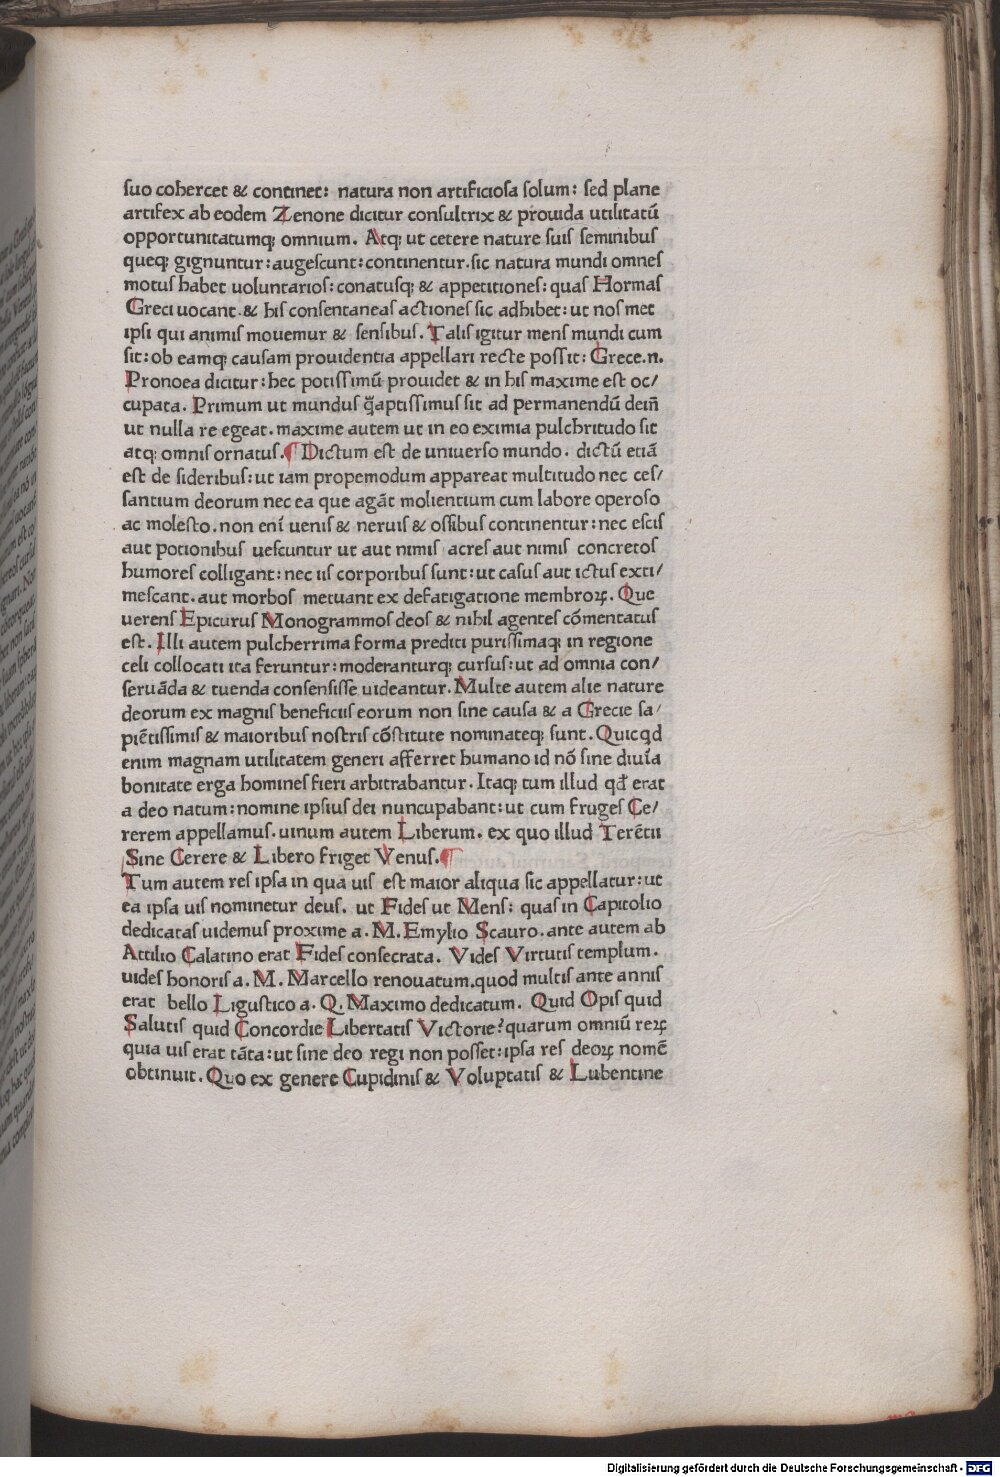 suo cohercet & continet: natura non artificiosa solum: sed plane
artifex ab eodem Zenone dicitur consultrix & prouida utilitatū
opportunitatumq; omnium. Atq; ut cetere nature suis seminibus
queq; gignuntur: augescunt: continentur. sic natura mundi omnes
motus habet uoluntarios: conatusq; & appetitiones: quas Hormas
Greci uocant. & his consentaneas actiones sic adhibet: ut nos met
ipsi qui animis mouemur & sensibus. Talis igitur mens mundi cum
sit: ob eamq; causam prouidentia appellari recte possit: Grece.n.
Pronoea dicitur: hec potissimū prouidet & in his maxime est oc/
cupata. Primum ut mundus q̄aptissimus sit ad permanendū dein̄
ut nulla re egeat. maxime autem ut in eo eximia pulchritudo sit
atq; omnis ornatus. ¶ Dictum est de uniuerso mundo. dictū etiā
est de sideribus: ut iam propemodum appareat multitudo nec ces/
santium deorum nec ea que agāt molientium cum labore operoso
ac molesto. non eni̅ uenis & neruis & ossibus continentur: nec escis
aut potionibus uescuntur ut aut nimis acres aut nimis concretos
humores colligant: nec iis corporibus sunt: ut casus aut ictus exti/
mescant. aut morbos metuant ex defatigatione membroꝝ. Que
uerens Epicurus Monogrammos deos & nihil agentes cōmentatus
est. Illi autem pulcherrima forma prediti purissimaq; in regione
celi collocati ita feruntur: moderanturq; cursus: ut ad omnia con/
seruāda & tuenda consensisse uideantur. Multe autem alie nature
deorum ex magnis beneficiis eorum non sine causa & a Grecie sa/
piētissimis & maioribus nostris cōstitute nominateq; sunt. Quicqd
enim magnam utilitatem generi afferret humano id nō sine diui̅a
bonitate erga homines fieri arbitrabantur. Itaq; tum illud qd̄ erat
a deo natum: nomine ipsius dei nuncupabant: ut cum fruges Ce/
rerem appellamus. uinum autem Liberum. ex quo illud Terētii
Sine Cerere & Libero friget Venus. ¶
Tum autem res ipsa in qua uis est maior aliqua sic appellatur: ut
ea ipsa uis nominetur deus. ut Fides ut Mens: quas in Capitolio
dedicatas uidemus proxime a. M. Emylio Scauro. ante autem ab
Attilio Calatino erat Fides consecrata. Vides Virtutis templum.
uides honoris a. M. Marcello renouatum. quod multis ante annis
erat bello Ligustico a. Q. Maximo dedicatum. Quid Opis quid
Salutis quid Concordie Libertatis Victorie? quarum omniū reꝝ
quia uis erat tāta: ut sine deo regi non posset: ipsa res deoꝝ nomē
obtinuit. Quo ex genere Cupidinis & Voluptatis & Lubentine
Digitalisierung gefördert durch die Deutsche Forschungsgemeinschaft - DFG